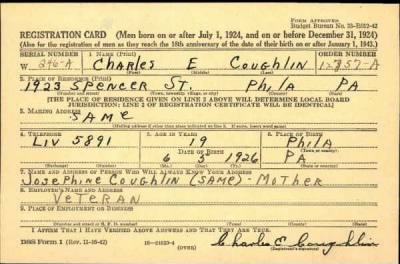 FORM APPROVED
Budget Bureau No. 33-R012-42
REGISTRATION CARD (Men born on or after July 1, 1924, and on or before December 31, 1924)
(Also for the registration of men as they reach the 18th anniversary of the date of their birth on or after January 1, 1943.)
SERIAL NUMBER 1. NAME (Print) ORDER NUMBER
W 246-A CHARLES E COUGHLIN 12857-A
(First) (Middle) (Last)
2. PLACE OF RESIDENCE (Print)
1925 SPENCER ST. PhilA PA
(Number and street) (Town, township, village, or city) (County) (State)
[THE PLACE OF RESIDENCE GIVEN ON LINE 2 ABOVE WILL DETERMINE LOCAL BOARD
JURISDICTION; LINE 2 OF REGISTRATION CERTIFICATE WILL BE IDENTICAL]
3. MAILING ADDRESS
SAME
[Mailing address if other than place indicated on line 2. If same, insert word same]
4. TELEPHONE 5. AGE IN YEARS 6. PLACE OF BIRTH
LIV 5891 19 PhilA
DATE OF BIRTH (Town or county)
6 5 1926 PA
(Exchange) (Number) (Mo.) (Day) (Yr.) (State or country)
7. NAME AND ADDRESS OF PERSON WHO WILL ALWAYS KNOW YOUR ADDRESS
JOSEPHINE COUGHLIN (SAME) - MOTHER
8. EMPLOYER'S NAME AND ADDRESS
VETERAN
9. PLACE OF EMPLOYMENT OR BUSINESS
(Number and street or R. F. D. number) (Town) (County) (State)
I AFFIRM THAT I HAVE VERIFIED ABOVE ANSWERS AND THAT THEY ARE TRUE.
DSS Form 1 (Rev. 11-16-42) 16-21630-4 (OVER) Charles E Coughlin
(Registrant's signature)